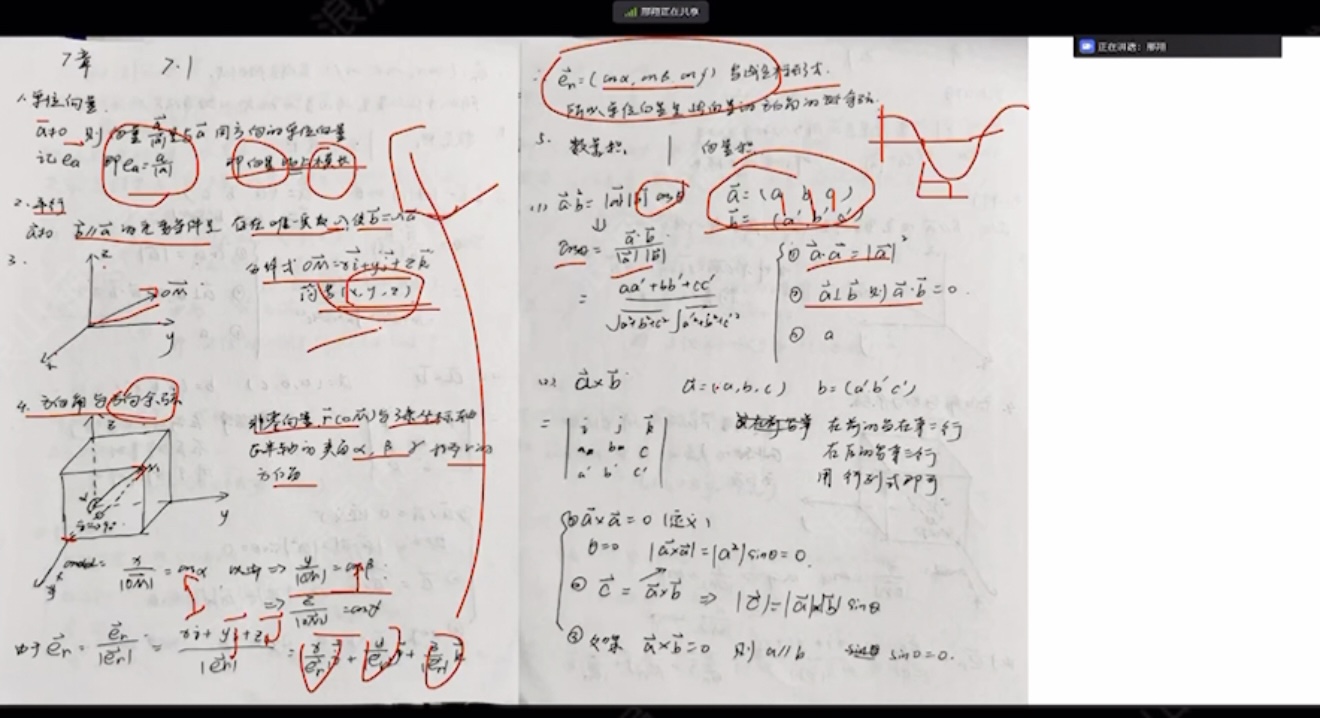 那翔正在共享
正在讲话: 那翔
7章 7.1
1. 单位向量
a≠0 则向量 a/|a| 是与a同方向的单位向量
记 ea 即ea = a/|a| 即向量 模长
2. 平行
a≠0 b∥a 的充要条件是 存在唯一实数λ,使b=λa
3.
z
OM
y
x
分解式 OM=xi+yj+zk
(x, y, z)
4. 方向角与方向余弦
z
y
x
非零向量 r(OM)与3条坐标轴
正半轴的夹角α, β, γ 称为r的
方向角
x/|OM| = cosα => y/|OM| = cosβ
=> z/|OM| = cosγ
由于 er = er/|er| = (xi+yj+zk)/|er| = x/|er| i + y/|er| j + z/|er| k
er=(cosα, cosβ, cosγ)
所以单位向量
5. 数量积, | 向量积
(1) a·b = |a||b| cosθ
a=(a, b, c)
b=(a', b', c')
⇓
cosθ = a·b/|a||b|
= (aa'+bb'+cc')/(√a²+b²+c² √a'²+b'²+c'²)
① a·a = |a|²
② a⊥b 则 a·b=0
③ a
(2) a×b a=(a,b,c) b=(a' b' c')
= | i j k |
c
a' b' c'
在前的写在第二行
在后的写第三行
用行列式即可
① a×a=0 (定义)
θ=0 |a×a|=|a²|sinθ=0.
② c = a×b => |c|=|a|×|b| sinθ
③ 如果 a×b=0 则 a∥b sinθ=0.